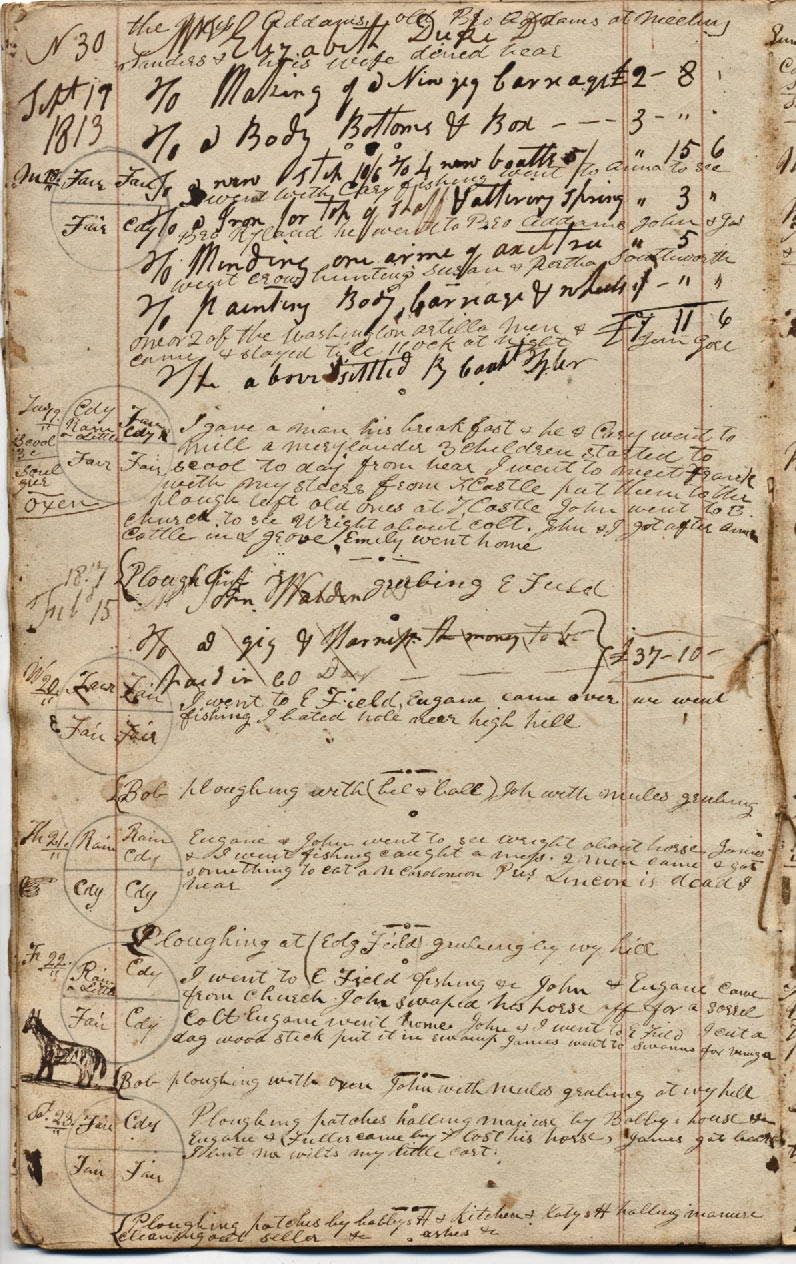 the Mrs Addams, old Bro Addams at meeting
N 30 Elizabeth Duke Dr
Landers & his wife dined hear
Sept 17 To Making of a New gig Carriage £2 - 8
1813 To a Body Bottoms & Box - - - 3 - "
Fair Fair To a new Step 10/6 To 4 new boatts 5/ " 15 6
I went with Cary fishing went to Anna to see
Fair Cdy To a Iron for top of Shaft & altering Spring " 3 "
Bro Ryland he went to Bro Addams John & Gus
To Mending one arme of axiltree " 5
went crow hunting Susan & Partha Southworth
To painting Body, Carriage & wheels 1 - " "
one or 2 of the Washington artilla men & £7 11 6
came & stayed till 11 ock at night
The above settled By
Cdy Fair I gave a man his breakfast & he & Cary went to
Rain a Little Cdy R mill a merylander 3 children started to
Fair Fair scool to day from hear I went to meet Frank
with my steers from NCastle put them to the
Oxen plough left old ones at NCastle John went to B.
church to see Wright about colt. John & I got after
Cattle in grove Emily went home
1817 Plough grubing E Field
Feb 15 John Walden
To a gig & Harniss the money to be
paid in 60 Days - - - £37-10-
W 20 Fair Fair I went to E Field, Eugane came over we went
Fair Fair fishing I bated hole near high hill
Bob ploughing with (bil & ball) Joh with mules grubing
Th 21 Rain Rain Cdy Eugane & John went to see Wright about horse James
& I went fishing caught a mess. 2 men came & got
Cdy Cdy something to eat a N Carolonion Pres Lincon is dead &
hear
Ploughing at (Edg Feild) grubing by wy hill
Fr 22 Rain a Little Cdy I went to E Field fishing & John & Eugane came
from Church John swaped his horse off for a sorrel
Fair Cdy Colt Eugane went home John & I went to E Field I cut a
dag wood stick put it in swamp James went to Swanns for vinega
Bob ploughing with oxen John with mules grubing at wy hill
S. 23 Fair Cdy Ploughing patches halling manure by Bobbys house &
Eugane & Fuller came by F lost his horse, James got back
Fair Fair I hunt no wilts my little cart.
Ploughing patches by bobbys H & Kitchen & Katys H halling manure
cleaning out seller & ashes &c